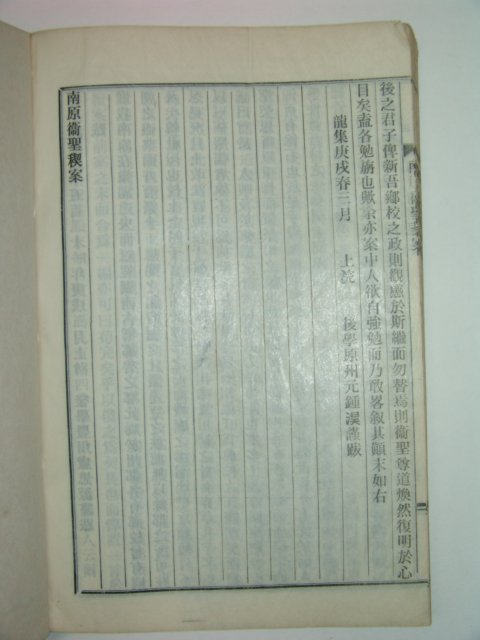 後之君子俾新吾鄉校之政則觀感於斯繼而勿替焉則衞聖尊道煥然復明於心
目矣盍各勉旃也歟余亦案中人欲自強勉而乃敢畧叙其顚末如右
龍集庚戌春三月 上浣 後學原州元鍾漢謹跋
南原衞聖稧案